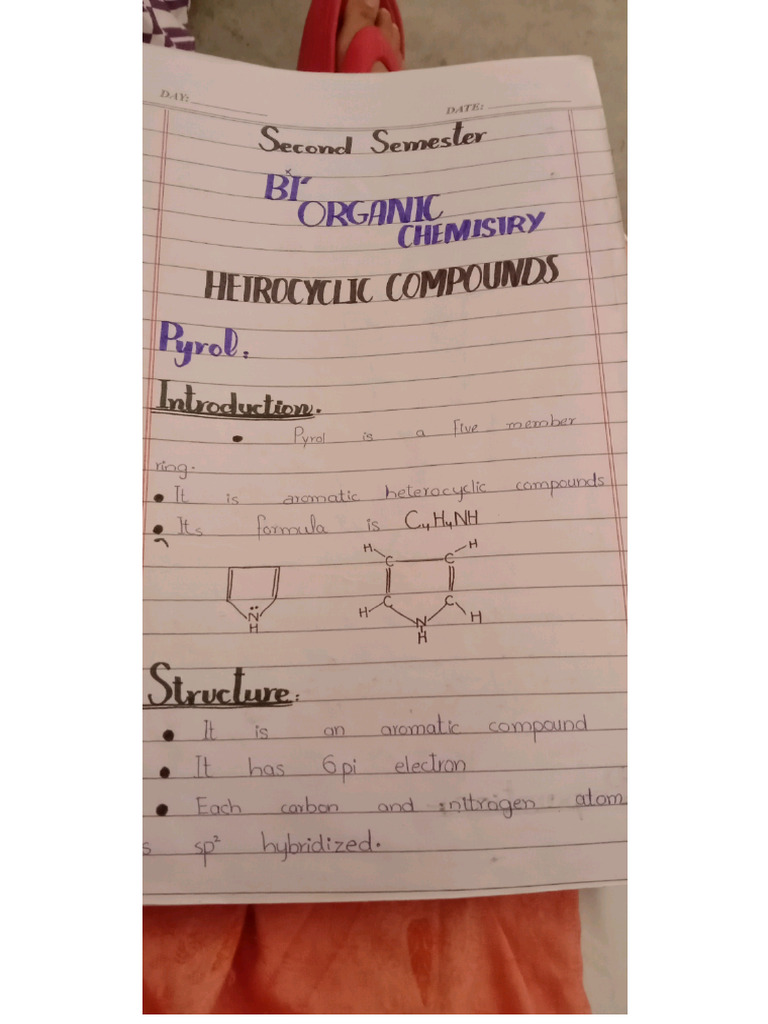 DAY:
DATE:
Second Semester
BI
ORGANIC
CHEMISTRY
HETROCYCLIC COMPOUNDS
Pyrol:
Introduction.
• Pyrol is a five member
ring.
• It is aromatic heterocyclic compounds
• Its formula is C₄H₄NH
H H
C C
C C
H N H
H
N
H
Structure:
• It is an aromatic compound
• It has 6pi electron
• Each carbon and nittrogen atom
s sp² hybridized.